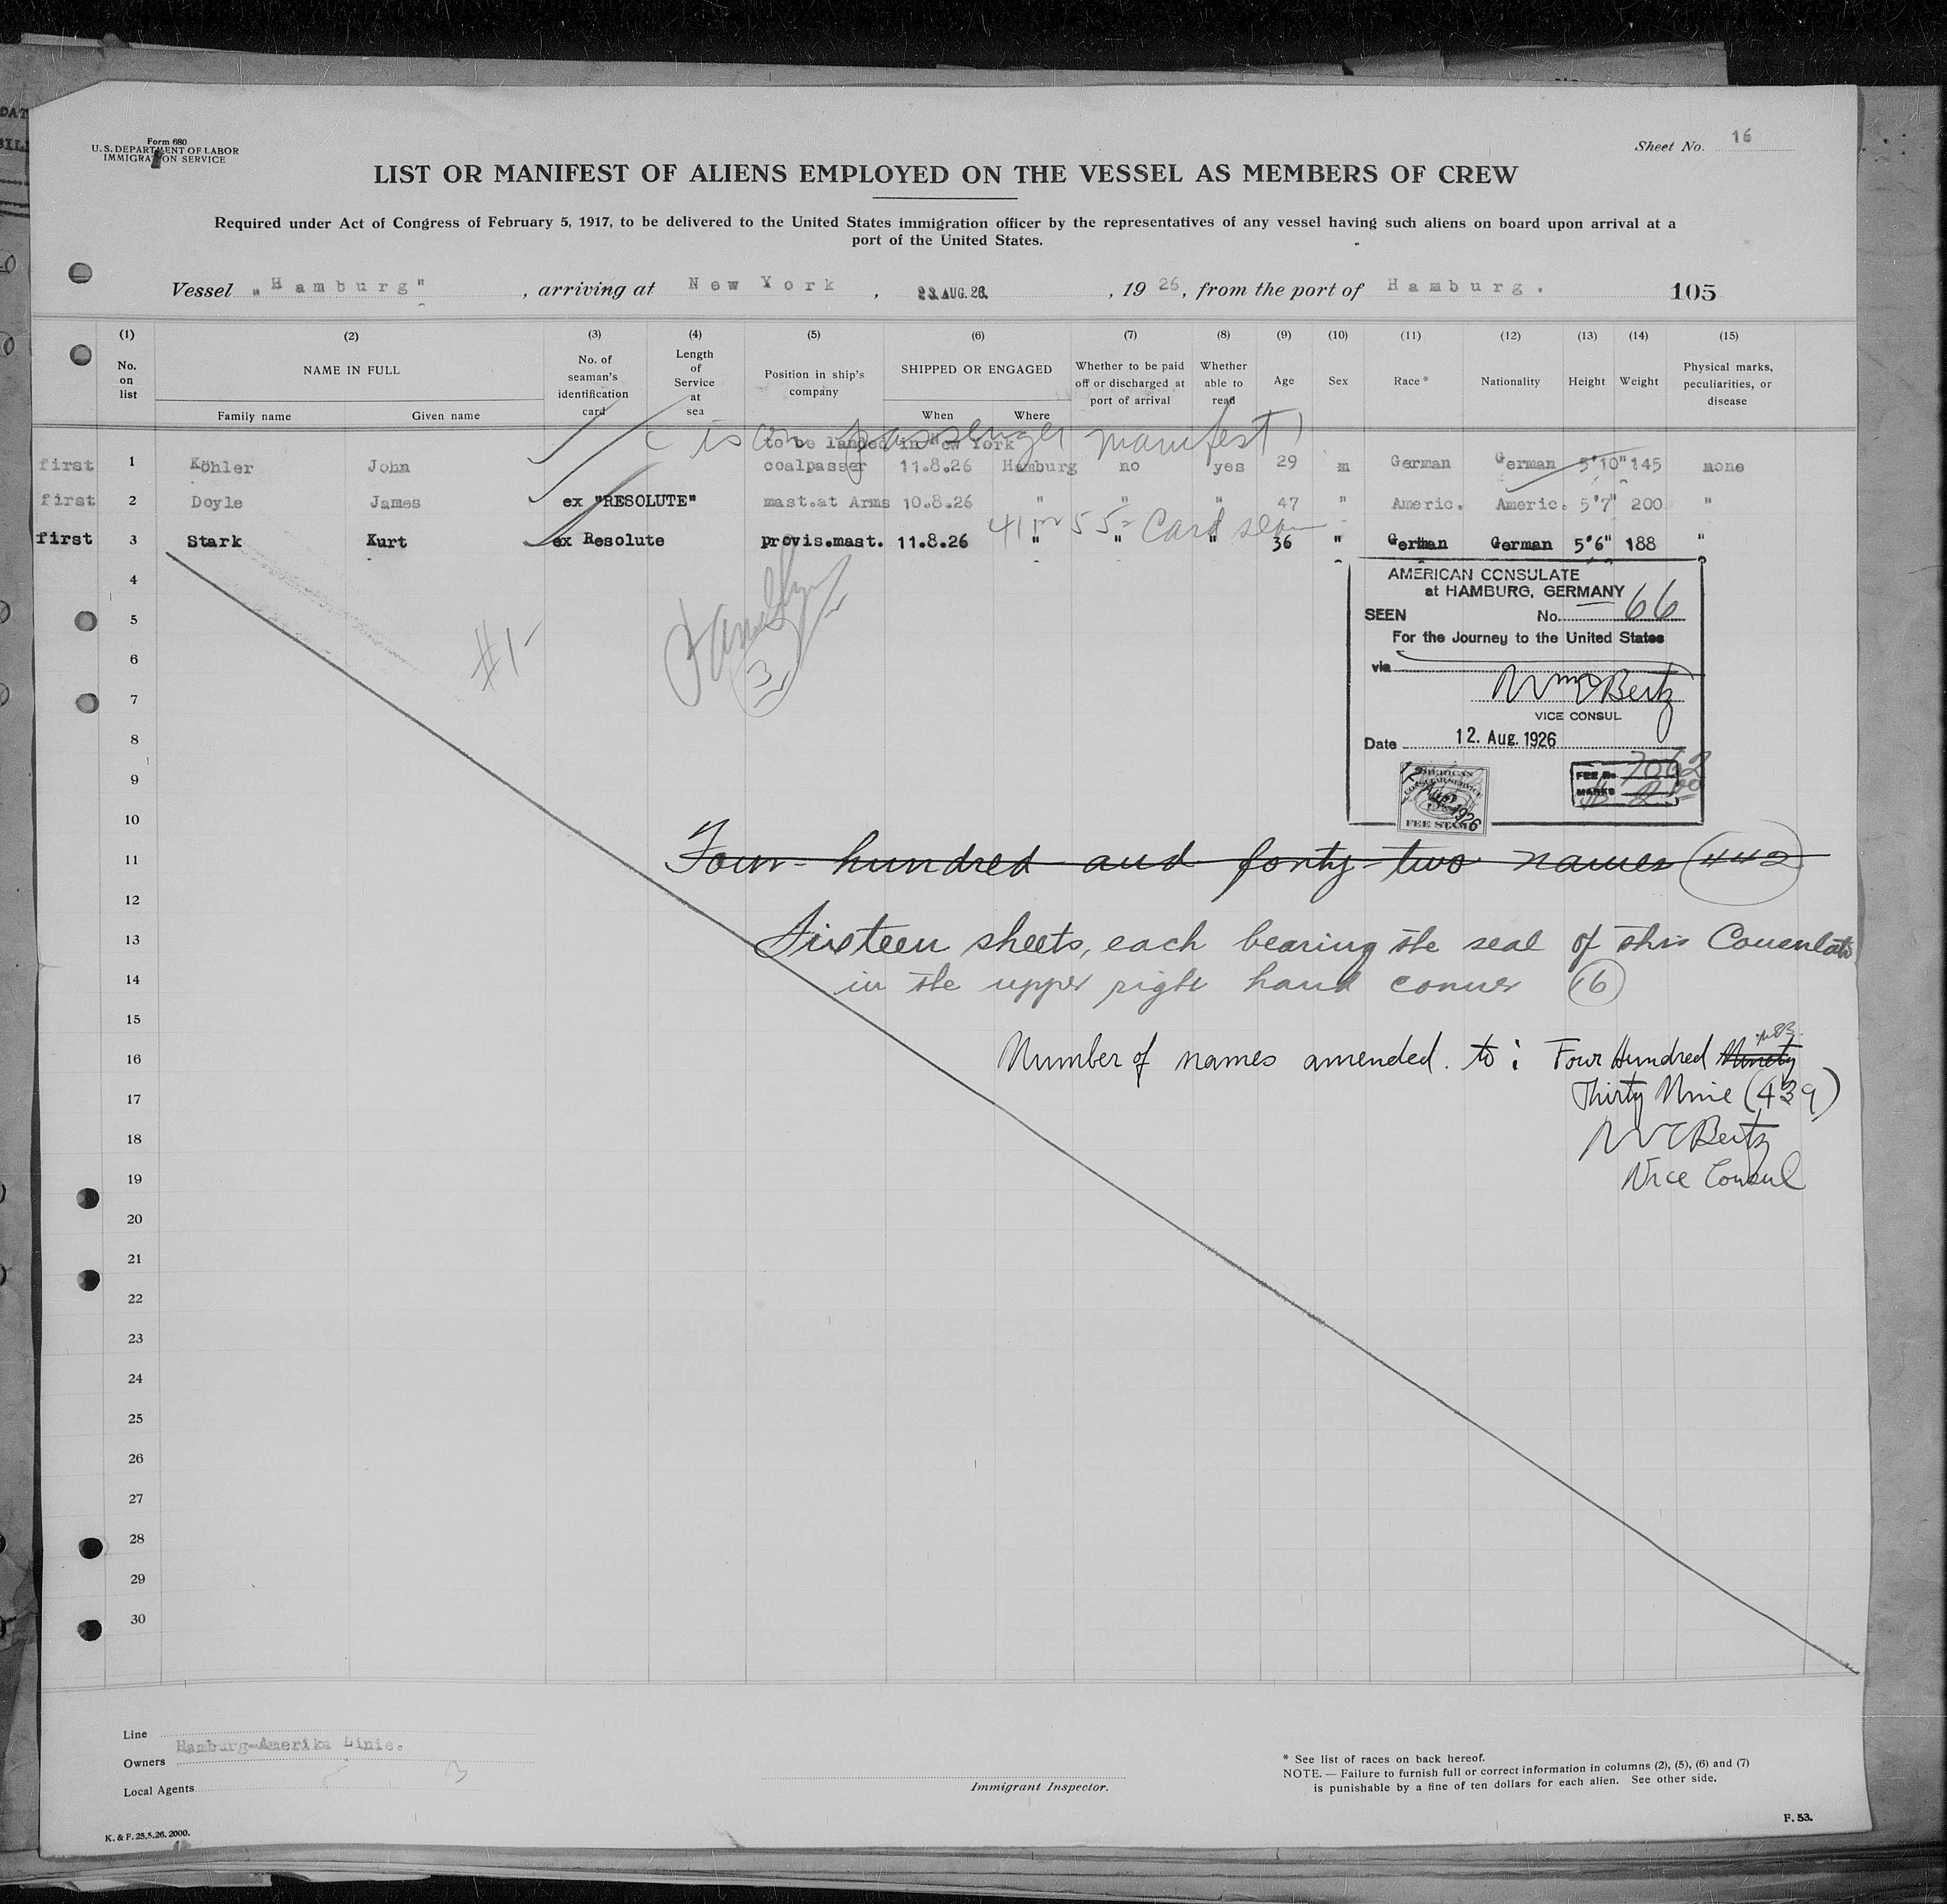 Form 680
U. S. DEPARTMENT OF LABOR
IMMIGRATION SERVICE
Sheet No. 16
LIST OR MANIFEST OF ALIENS EMPLOYED ON THE VESSEL AS MEMBERS OF CREW
Required under Act of Congress of February 5, 1917, to be delivered to the United States immigration officer by the representatives of any vessel having such aliens on board upon arrival at a
port of the United States.
Vessel "Hamburg", arriving at New York, 23. AUG. 26., 1926, from the port of Hamburg. 105
(1) (2) (3) (4) (5) (6) (7) (8) (9) (10) (11) (12) (13) (14) (15)
No. on list NAME IN FULL Family name Given name No. of seaman's identification card Length of Service at sea Position in ship's company SHIPPED OR ENGAGED When Where Whether to be paid off or discharged at port of arrival Whether able to read Age Sex Race * Nationality Height Weight Physical marks, peculiarities, or disease
( is on passenger manifest )
to be landed in New York
first 1 Köhler John coalpasser 11.8.26 Hamburg no yes 29 m German German 5'10" 145 none
first 2 Doyle James ex "RESOLUTE" mast.at Arms 10.8.26 " " " 47 " Americ. Americ. 5'7" 200 "
Card seen
first 3 Stark Kurt ex Resolute provis.mast. 11.8.26 " " " 36 " German German 5'6" 188 "
4
5
6
7
8
9
10
11
12
13
14
15
16
17
18
19
20
21
22
23
24
25
26
27
28
29
30
#1
3
AMERICAN CONSULATE
at HAMBURG, GERMANY
SEEN No. 66
For the Journey to the United States
via
Bertz
VICE CONSUL
Date 12. Aug. 1926
FEE No. 7062
MARKS
AMERICAN
CONSULAR SERVICE
FEE STAMP
Four hundred and forty-two names (442)
Sixteen sheets, each bearing the seal of this Consulate
in the upper right hand corner 16
Number of names amended to: Four Hundred Ninety
Thirty Nine (439)
Bertz
Vice Consul
Line
Owners Hamburg-Amerika Linie.
Local Agents
Immigrant Inspector.
* See list of races on back hereof.
NOTE. — Failure to furnish full or correct information in columns (2), (5), (6) and (7)
is punishable by a fine of ten dollars for each alien. See other side.
K. & F. 25.5.26. 2000.
F. 53.